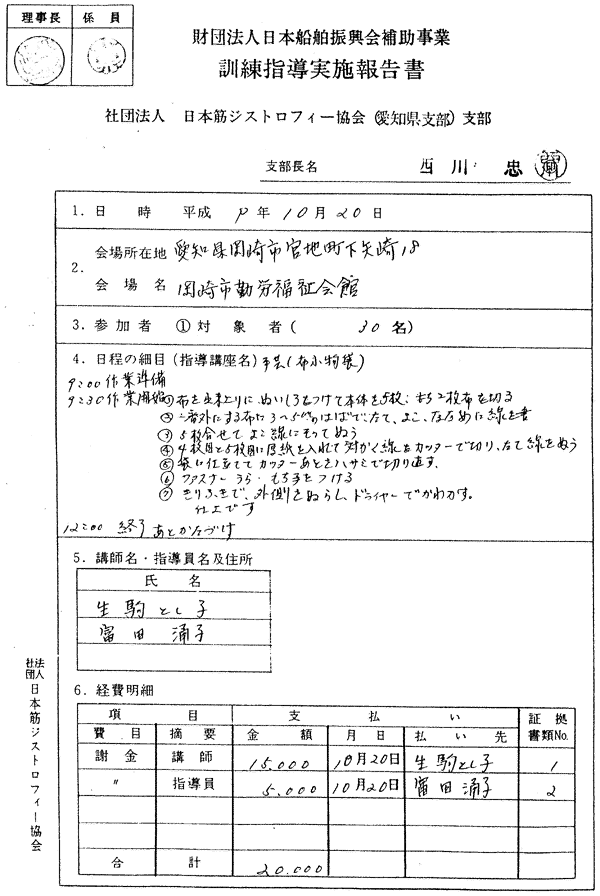 理事長 係員
財団法人日本船舶振興会補助事業
訓練指導実施報告書
社団法人 日本筋ジストロフィー協会(愛知県支部)支部
支部長名 西川 忠
1.日 時 平成 9年10月20日
2.
会場所在地 愛知県岡崎市宮地町下矢崎18
会場名 岡崎市勤労福祉会館
3.参加者 ①対象者( 30名)
4.日程の細目(指導講座名)手芸(布小物袋)
9:00 作業準備
9:30 作業開始 ①布を出来上りに ぬいしろをつけて本体を5枚、もち2枚布を切る
②一番外にする布に3〜5㎝はばで、たて、よこ、ななめに線を書
③5枚合せて よこ線にそってぬう
④4枚目と5枚目に厚紙を入れて 線をカッターで切り、たて線をぬう
⑤袋に仕立てて カッターあとをハサミで切り直す
⑥ファスナー うら・もち手をつける
⑦きりふきで、外側をぬらし、ドライヤーでかわかす。
仕上です
12:00 終了 あとかたづけ
5.講師名・指導員名及住所
氏 名
生駒とし子
富田 涌子
6.経費明細
項 目 支 払 い 証 拠
費 目 摘 要 金 額 月 日 払 い 先 書類No.
謝 金 講 師 15.000 10月20日 生駒とし子 1
〃 指導員 5.000 10月20日 富田 涌子 2
合 計 20.000
社団法人 日本筋ジストロフィー協会